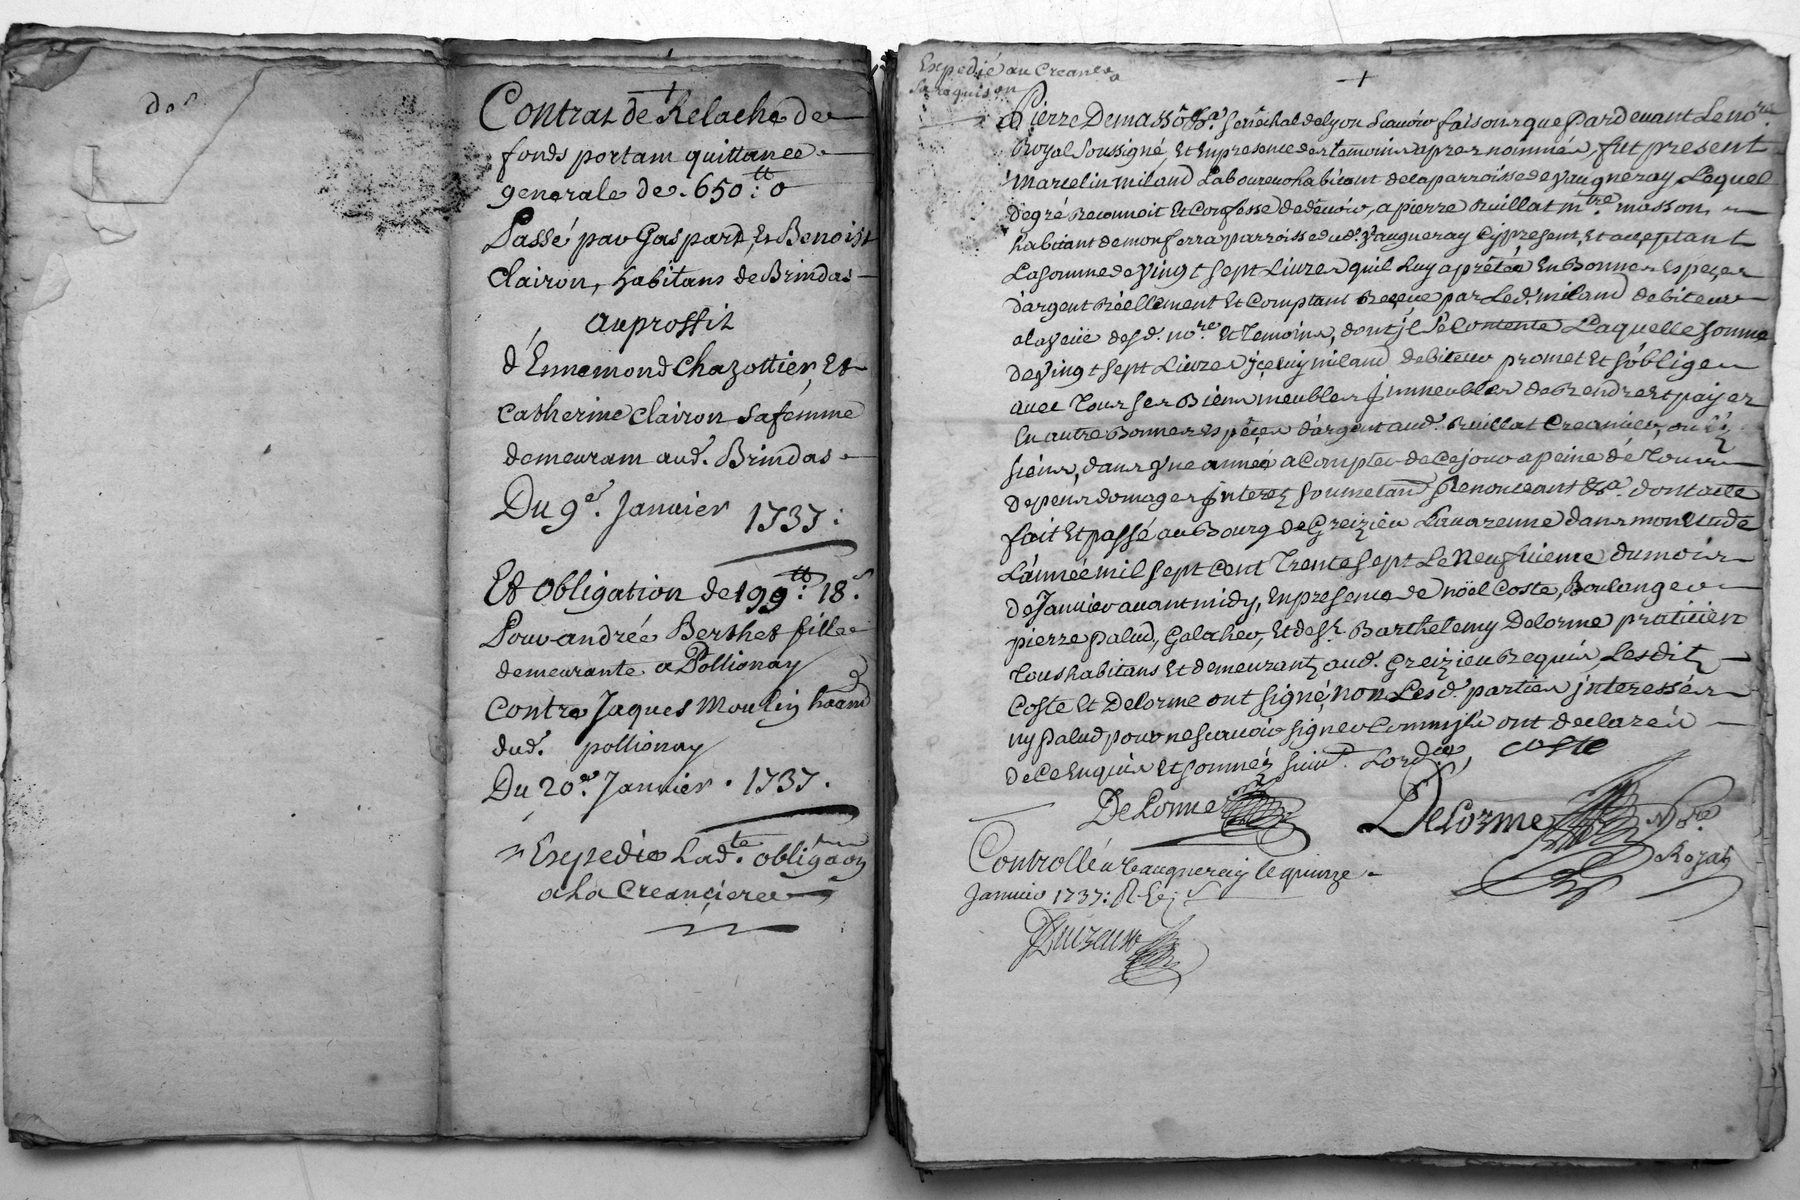 Contrat de Relache de
fonds portam quittance
generale de 650 : tt 0
Passé par Gaspard, Et Benoist
Clairon, habitans de Brindas
au proffit
d'Ennemond Chazottier, Et
Catherine Clairon sa femme
demeuram aud. Brindas
Du 9er. Janvier 1737 :
Et obligation de 199 tt : 18 s
Pour andrée Berthet fille
demeurante a Pollionay
contre Jaques Moulin
dud. pollionay
Du 20e. Janvier . 1737 .
Expedié Lad.te obliga.on
a La Creanciere
Expedié au Creancier
Sa Requison
Pierre Demasso &a. senéchal de lyon scavoir faisons que Pardevant Le no.re
Royal soussigné, Et En presence des temoins apres nommés, fut present
Marcelin miland Laboureur habitant de la parroisse de vaugneray Lequel
de gré Reconnoit Et Confesse de devoir, a pierre Ruillat m.tre masson,
habitant de monferra parroisse dud. Vaugneray Cy present, Et acceptant
La somme de Vingt sept Livres quil Luy a prêtée En Bonnes Espeçes
d'argent Réellement Et Comptant Reçeüe par Led. miland debiteur
a la veüe desd. no.re Et Temoins, dont jl se Contente Laquelle somme
de Vingt sept Livres jceluy miland debiteur promet Et s'oblige
avec Tous ses Biens meubles jmmeubles de Rendre Et payer
En autre Bonnes Espêçes d'argent aud. Ruillat Creancier, ou és
siens, dans Vne année a Compter de Ce jour a peine de Tous
depens domages jnterez soumetand Renonceant &a. dont acte
fait Et passé au Bourg de Greizieu Lavarenne dans mon Etude
L'année mil sept Cent Trente sept Le Neufvieme du mois
de Janvier avant midy, En presence de noël Coste, Boulanger
pierre palud, Galacher, Et de s.r Barthelemy Delorme praticien
Tous habitans Et demeurantz aud. Greizieu Requis Lesditz
Coste Et Delorme ont signé, non Lesd. parties jnteressées
ny palud pour ne scavoir signer Comm'jls ont declaréz
de Ce Enquis Et sommés suiv.t Lord.ce, coste
Delorme
Delorme No.re
Royal
Controllé a Vaugneray le quinze
Janvier 1737 :